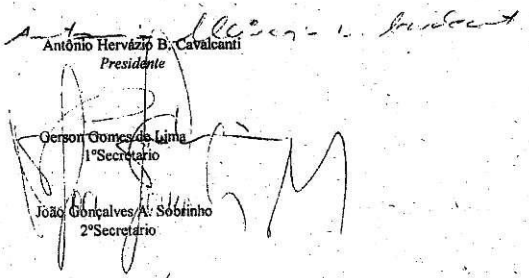 Antônio Hervázio B. Cavalcanti
Presidente
Gerson Gomes de Lima
1ºSecretário
João Gonçalves A. Sobrinho
2ºSecretário